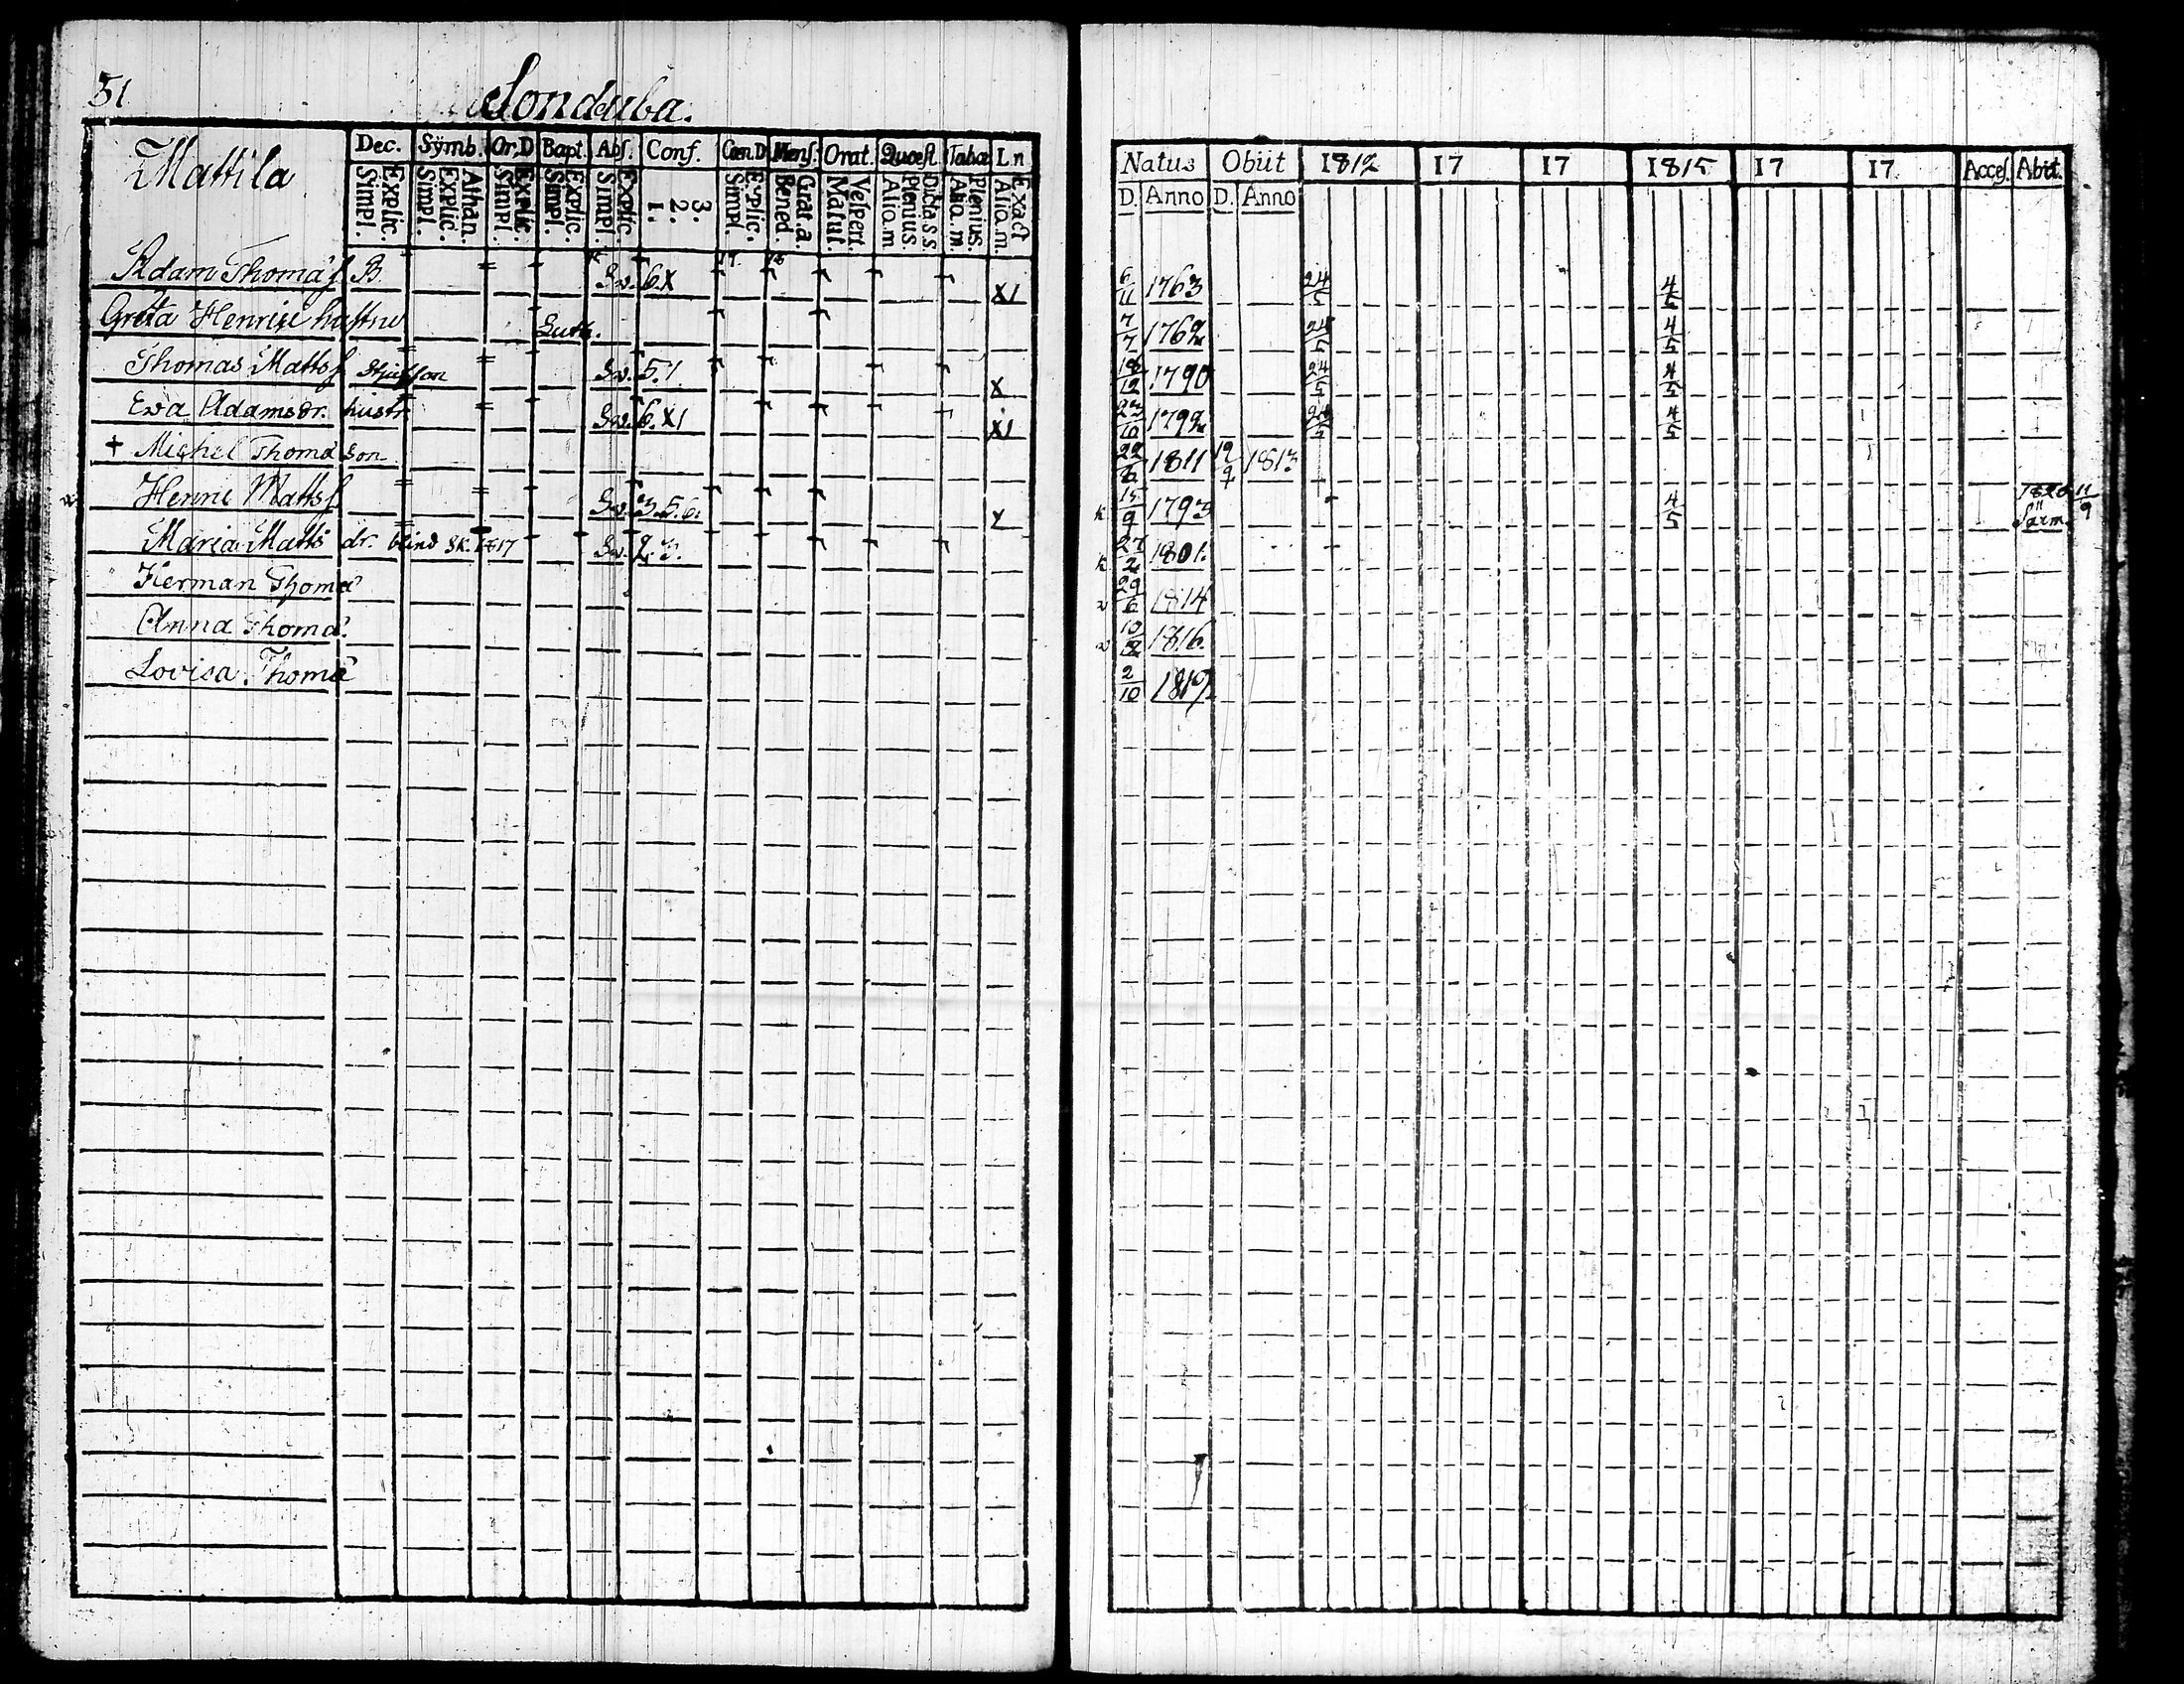 51
Sonduba.
Mattila
Dec. Sÿmb. Or.D Bapt. Abs. Conf. Coen.D Mens. Orat. Quæst. Taba Ln
Explic. Simpl. Athan. Explic. Simpl. Explic. Simpl. Explic. Simpl. Explic. Simpl. 3. 2. 1. Explic. Simpl. Grat. a. Bened. Vespert. Matut. Dicta s.s. Plenius. Alio.m Plenius. Alio.m. Exact Alio.m.
Natus Obiit 1812 17 17 1815 17 17 Acces. Abit.
D. Anno D. Anno
Adam Thomæ s. B. Sv. 6.x x1 6/11 1763 24/5 4/5
Greta Henrici hustru Luth. 7/7 1762 24/5 4/5
Thomas Matts s. Stjufson Sv. 5.1 x 1790 24/5 4/5
Eva Adamsdr. hustr. Sv. 6.x1 x1 1792 24/5 4/5
+ Michel Thomæ son 1811 1813
Henric Matts s. Sv. 3.5.6. 15/9 1793 4/5 11/9
Maria Matts dr. blind Sk. 1817 Sv. 2.3. 27/2 1801.
Herman Thomæ 29/6 1814
Anna Thomæ. 1816.
Lovisa Thomæ 2/10 1819.